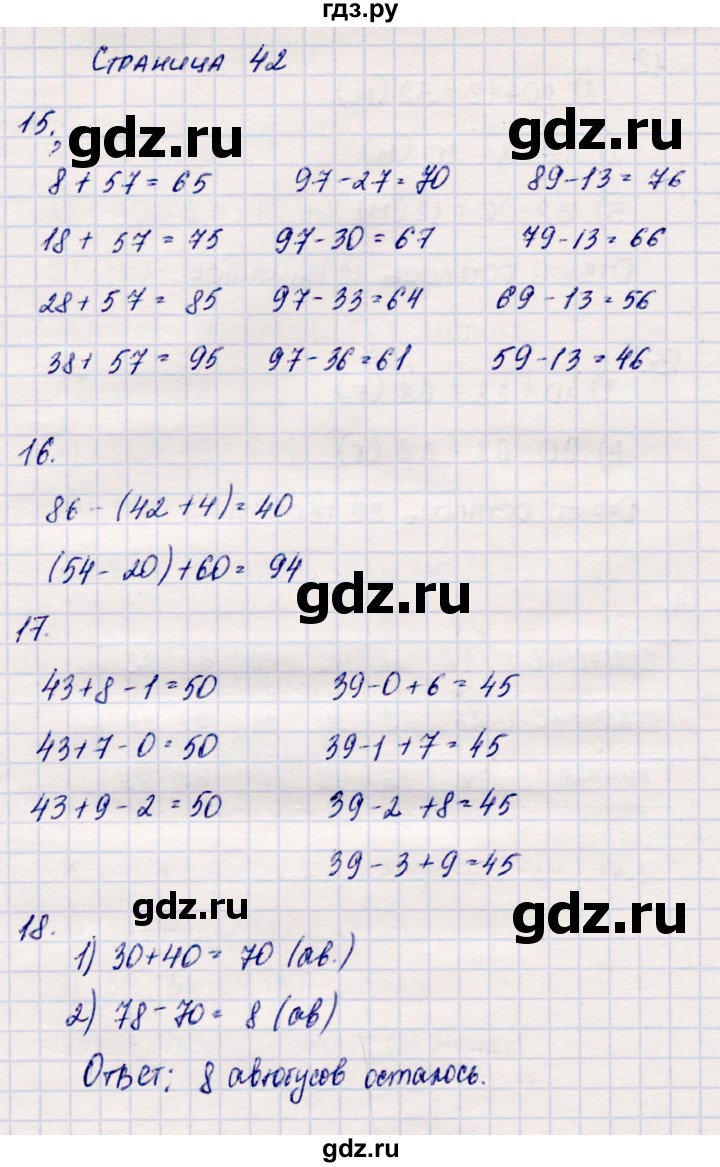 гдз.ру
Страница 42
15.
gdz.ru gdz.ru
8 + 57 = 65 97 - 27 = 70 89 - 13 = 76
18 + 57 = 75 97 - 30 = 67 79 - 13 = 66
28 + 57 = 85 97 - 33 = 64 69 - 13 = 56
38 + 57 = 95 97 - 36 = 61 59 - 13 = 46
16.
86 - (42 + 4) = 40
(54 - 20) + 60 = 94
gdz.ru
17.
43 + 8 - 1 = 50 39 - 0 + 6 = 45
43 + 7 - 0 = 50 39 - 1 + 7 = 45
43 + 9 - 2 = 50 39 - 2 + 8 = 45
39 - 3 + 9 = 45
18. gdz.ru gdz.ru
1) 30 + 40 = 70 (ав.)
2) 78 - 70 = 8 (ав)
Ответ; 8 автобусов осталось.
gdz.ru